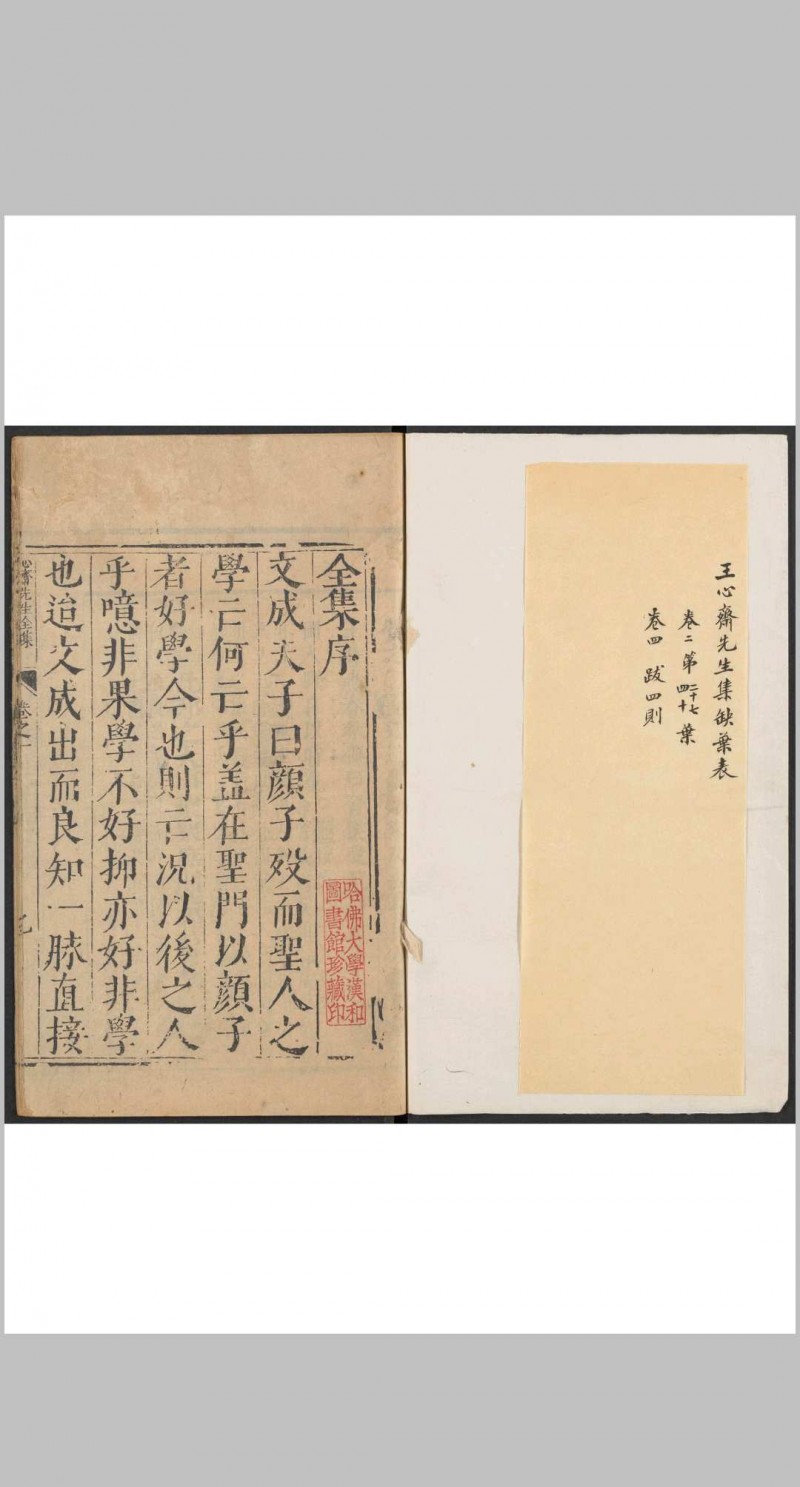 王心齋先生集缺葉表
卷二第二十七四十葉
卷四 跋四則
全集序
文成夫子曰顏子殁而聖人之
學亡何亡乎盖在聖門以顏子
者好學今也則亡況以後之人
乎噫非果學不好抑亦好非學
也迨文成出而良知一脉直接
心齋先生全集
卷之一
哈佛大學漢和
圖書館珍藏印